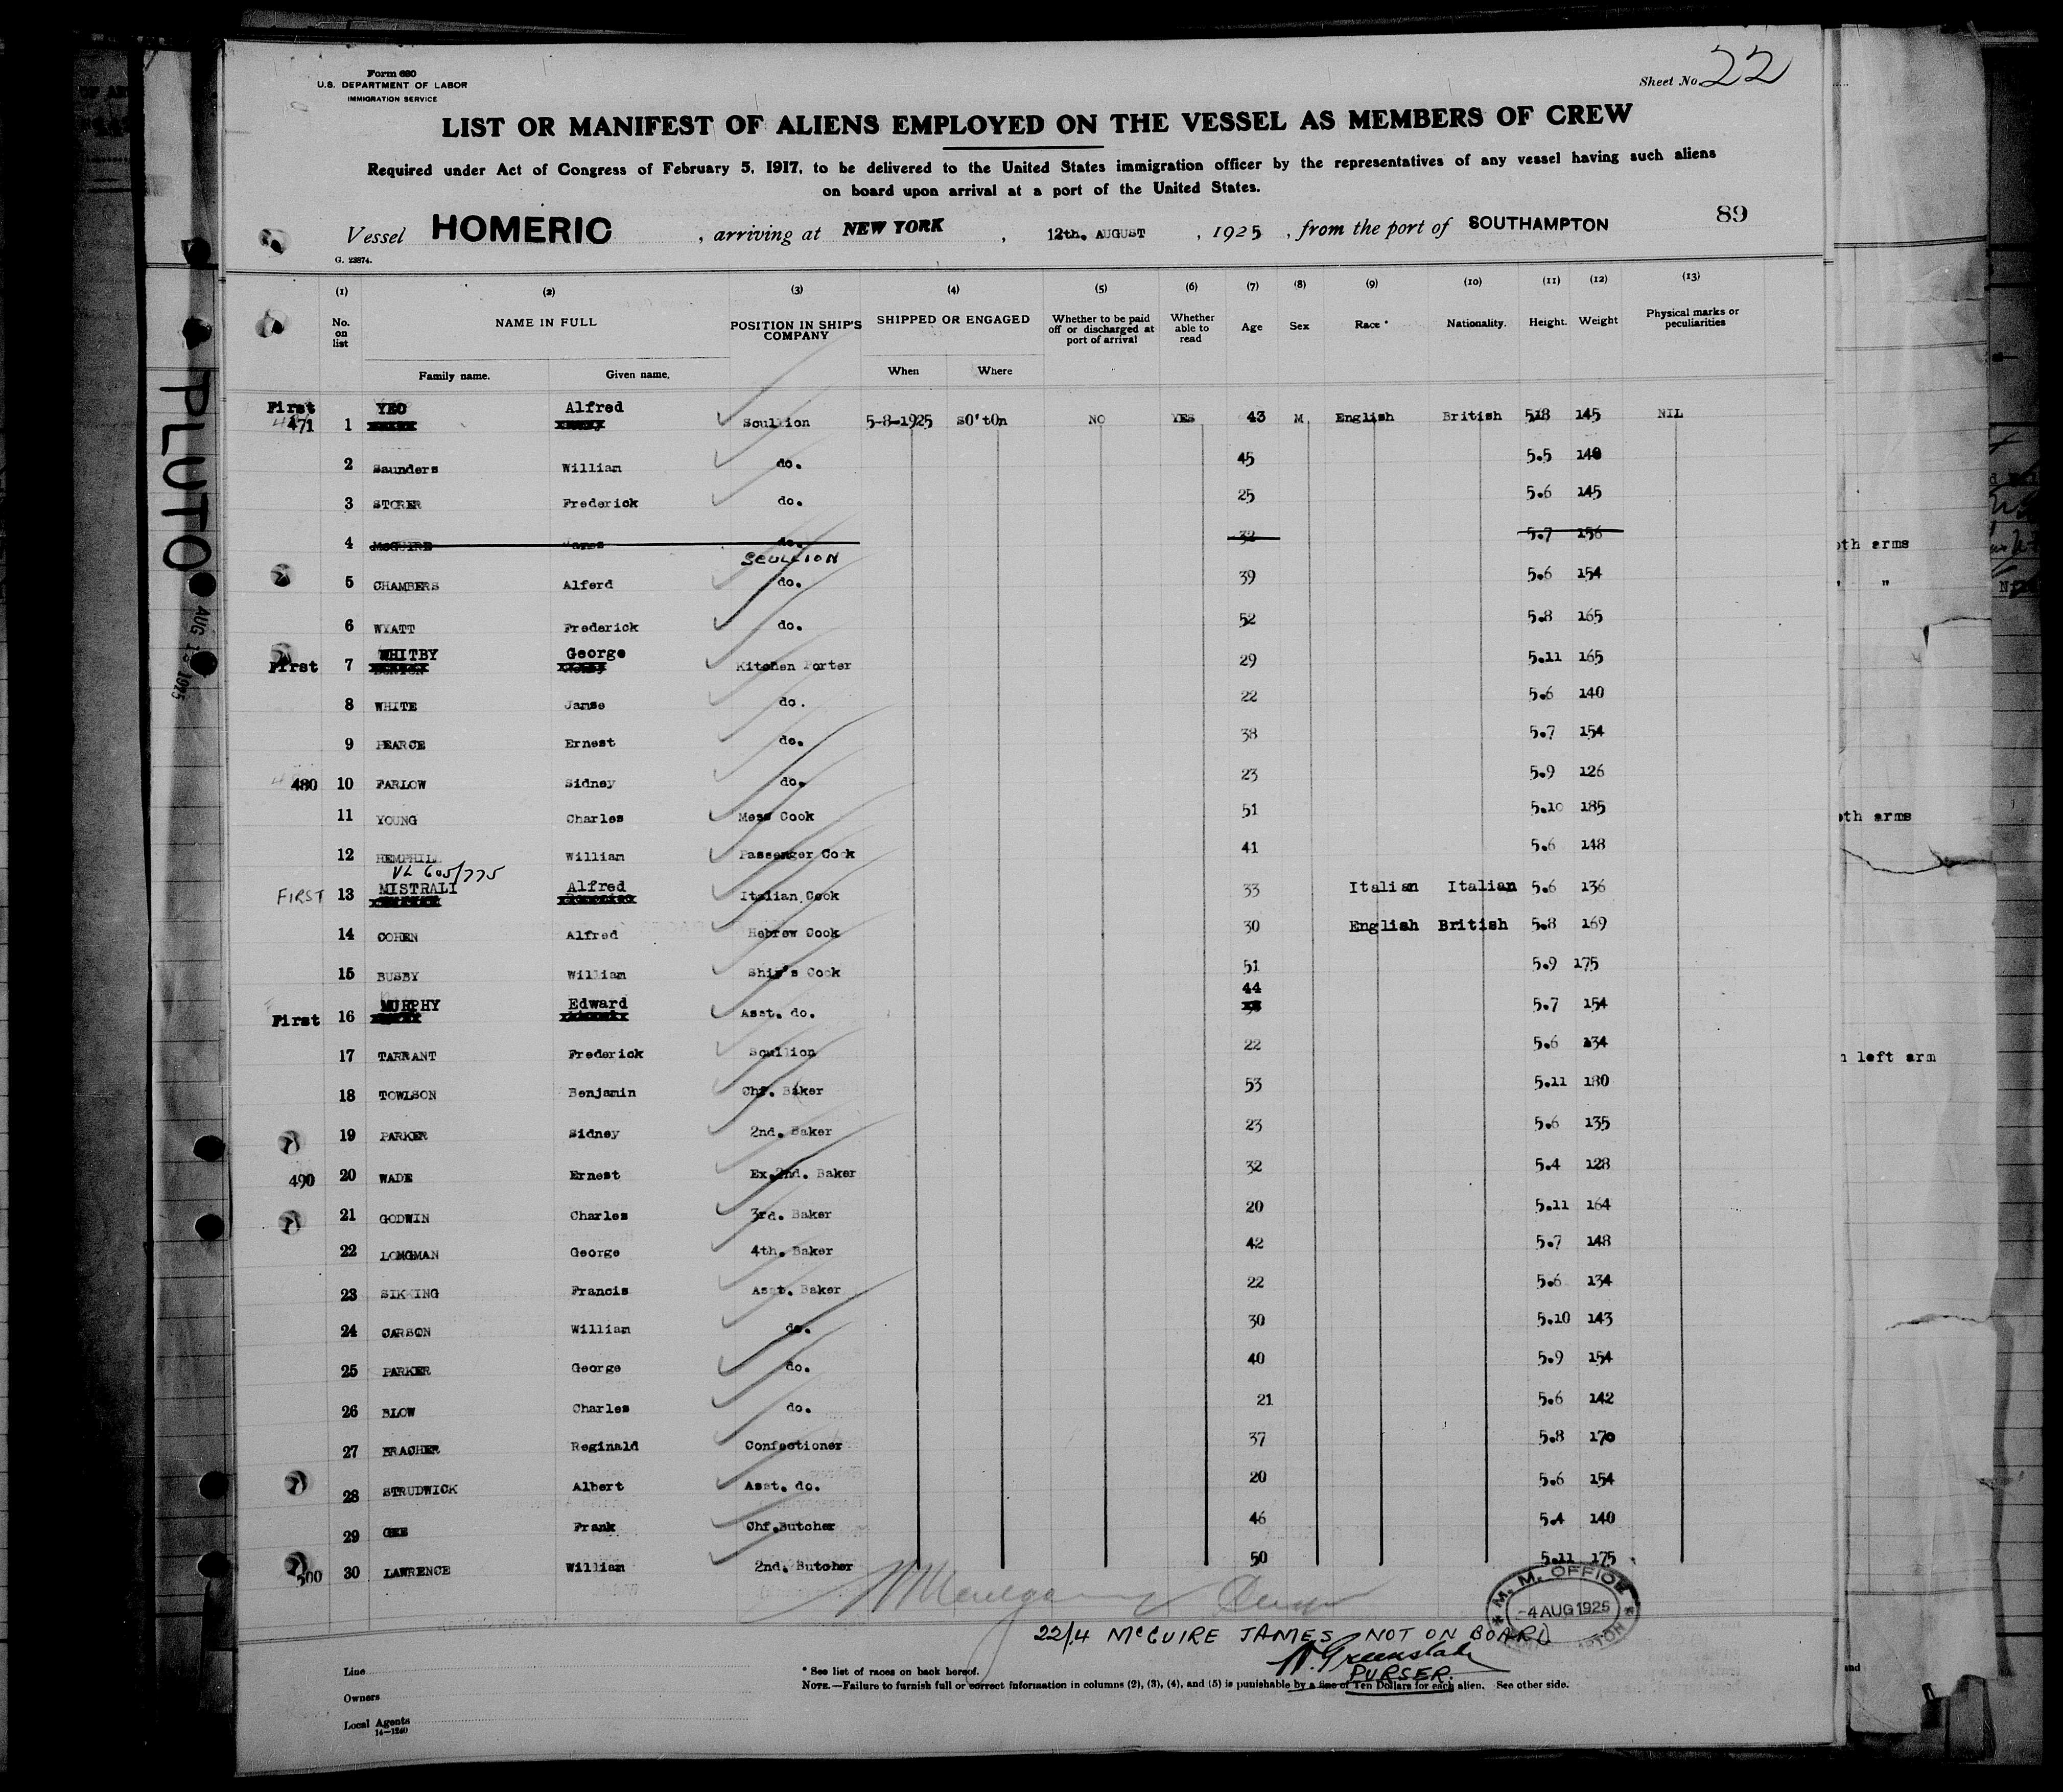 Form 680
U.S. DEPARTMENT OF LABOR
IMMIGRATION SERVICE
Sheet No. 22
LIST OR MANIFEST OF ALIENS EMPLOYED ON THE VESSEL AS MEMBERS OF CREW
Required under Act of Congress of February 5, 1917, to be delivered to the United States immigration officer by the representatives of any vessel having such aliens
on board upon arrival at a port of the United States.
89
Vessel HOMERIC , arriving at NEW YORK , 12th. AUGUST , 1925 , from the port of SOUTHAMPTON
G. 23874.
(1) (2) (3) (4) (5) (6) (7) (8) (9) (10) (11) (12) (13)
No. on list NAME IN FULL POSITION IN SHIP'S COMPANY SHIPPED OR ENGAGED Whether to be paid off or discharged at port of arrival Whether able to read Age Sex Race * Nationality. Height. Weight Physical marks or peculiarities
Family name. Given name. When Where
First 471 1 YEO Alfred Scullion 5-8-1925 SO'tOn NO YES 43 M. English British 5.8 145 NIL
2 Saunders William do. 45 5.5 140
3 STORER Frederick do. 25 5.6 145
4 McGUIRE James do. 32 5.7 156
SCULLION
5 CHAMBERS Alferd do. 39 5.6 154
6 WYATT Frederick do. 52 5.8 165
First 7 WHITBY George Kitchen Porter 29 5.11 165
8 WHITE Jamse do. 22 5.6 140
9 PEARCE Ernest do. 38 5.7 154
480 10 FARLOW Sidney do. 23 5.9 126
11 YOUNG Charles Mess Cook 51 5.10 185
12 HEMPHILL William Passenger Cook 41 5.6 148
VL 605/775
FIRST 13 MISTRALI Alfred Italian Cook 33 Italian Italian 5.6 136
14 COHEN Alfred Hebrew Cook 30 English British 5.8 169
15 BUSBY William Ship's Cook 51 5.9 175
First 16 MURPHY Edward Asst. do. 44 5.7 154
17 TARRANT Frederick Scullion 22 5.6 134
18 TOWLSON Benjamin Chf. Baker 53 5.11 180
19 PARKER Sidney 2nd. Baker 23 5.6 135
490 20 WADE Ernest Ex.2nd. Baker 32 5.4 128
21 GODWIN Charles 3rd. Baker 20 5.11 164
22 LONGMAN George 4th. Baker 42 5.7 148
23 SIKKING Francis Asst. Baker 22 5.6 134
24 CARSON William do. 30 5.10 143
25 PARKER George do. 40 5.9 154
26 BLOW Charles do. 21 5.6 142
27 BRACHER Reginald Confectioner 37 5.8 170
28 STRUDWICK Albert Asst. do. 20 5.6 154
29 GEE Frank Chf.Butcher 46 5.4 140
500 30 LAWRENCE William 2nd. Butcher 50 5.11 175
M. M. OFFICE
-4 AUG 1925
22/4 McGUIRE JAMES NOT ON BOARD
PURSER.
Line
Owners
Local Agents
14-1240
* See list of races on back hereof.
NOTE.—Failure to furnish full or correct information in columns (2), (3), (4), and (5) is punishable by a fine of Ten Dollars for each alien. See other side.
PLUTO
oth arms
" "
oth arms
left arm